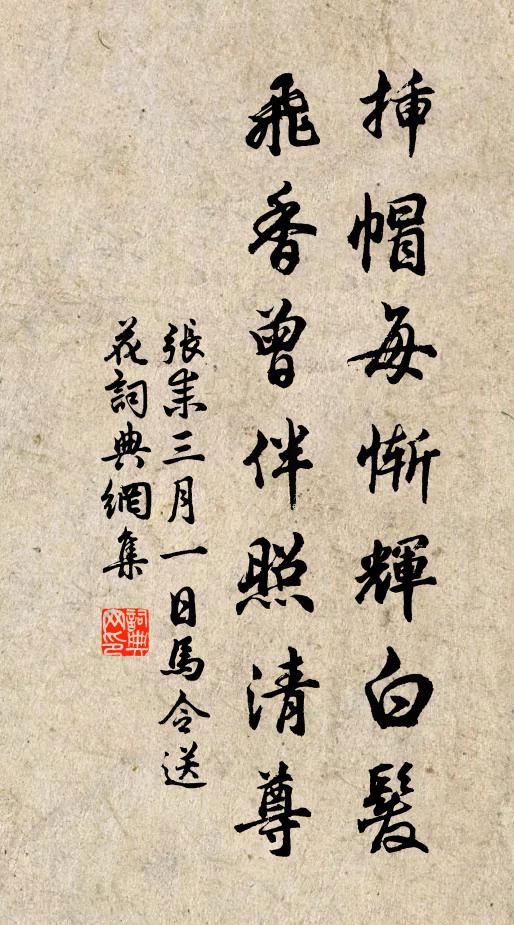 挿帽每慚輝白髮
飛香曾伴照清尊
張耒三月一日馬令送
花詞典網集
詞典
网印